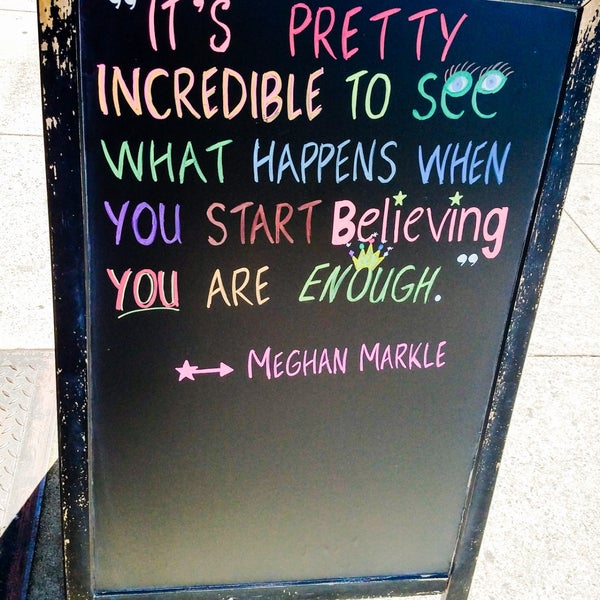 "IT'S PRETTY
INCREDIBLE TO See
WHAT HAPPENS WHEN
YOU START Believing
YOU ARE ENOUGH."
MEGHAN MARKLE